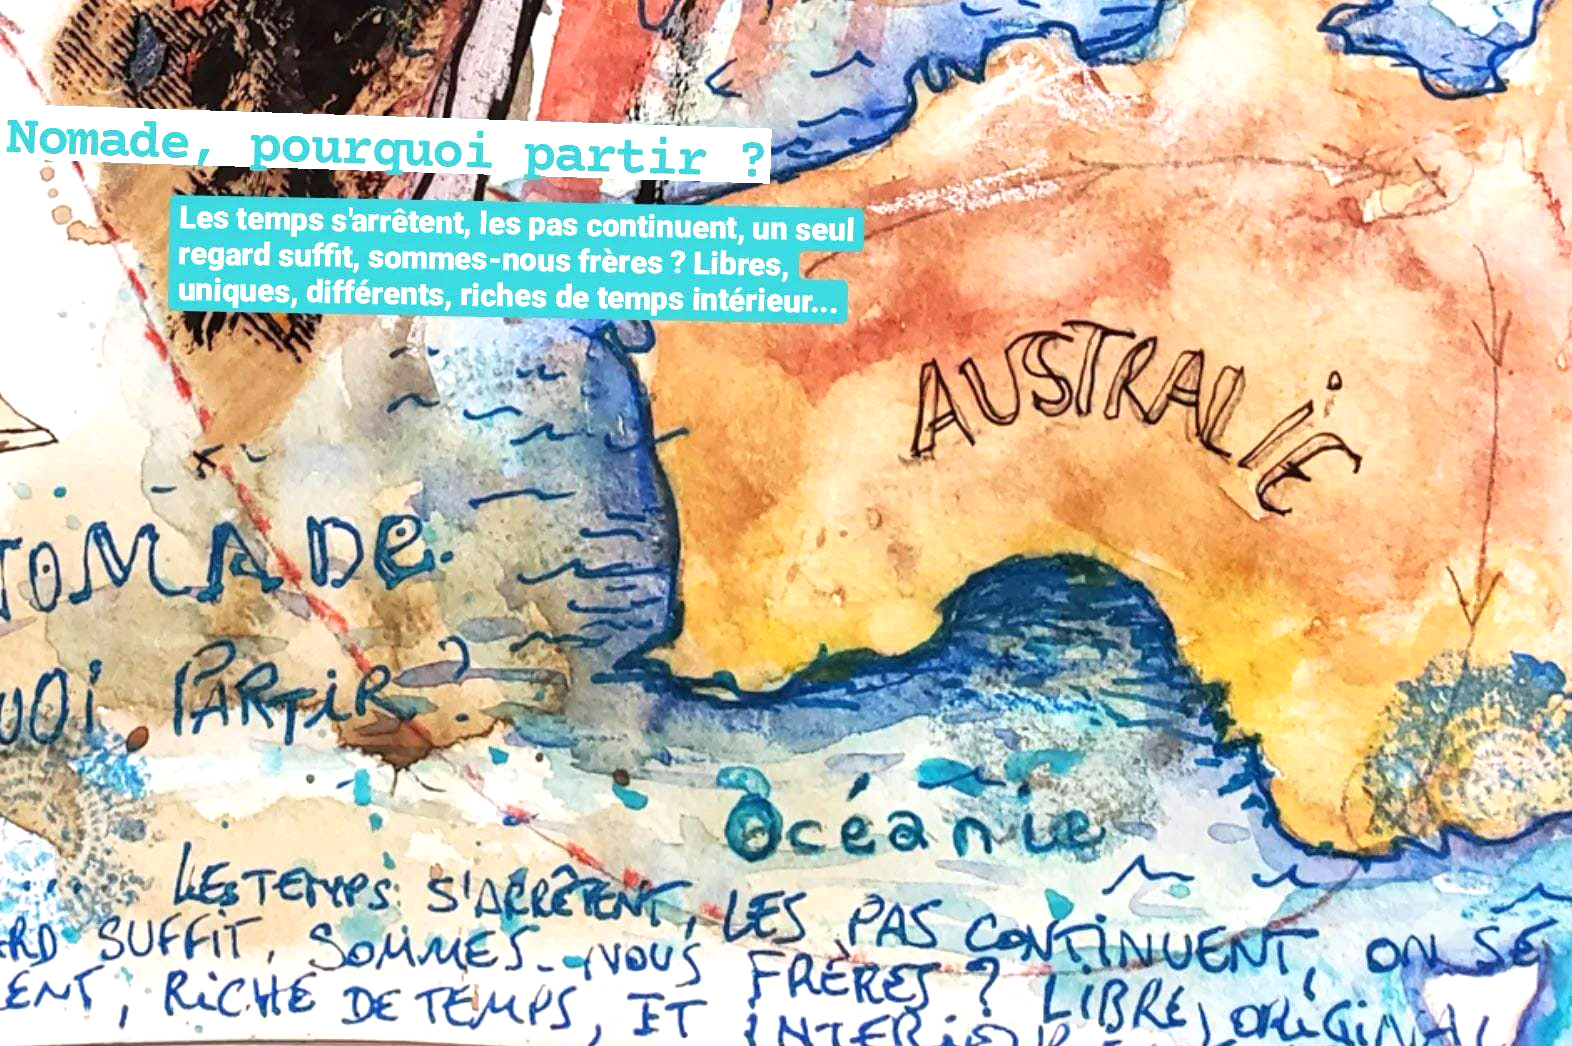 Nomade, pourquoi partir ?
Les temps s'arrêtent, les pas continuent, un seul
regard suffit, sommes-nous frères ? Libres,
uniques, différents, riches de temps intérieur...
AUSTRALIE
OMADE
UOI PARTIR ?
Océanie
LES TEMPS S'ARRÊTENT, LES PAS CONTINUENT, ON SE
RD SUFFIT, SOMMES-NOUS FRÈRES ? LIBRE, ORIGINAL
ENT, RICHE DE TEMPS, ET INTERIOR